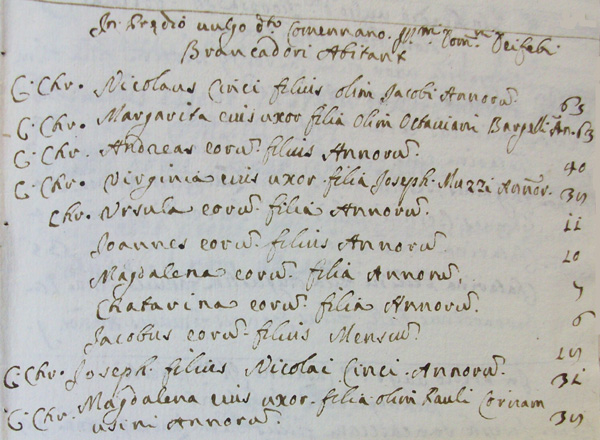 In Predio vulgo d.to Comennano. Ill.mi Dom.ni Deifebi
Brancadori Abitant
C. Chr. Nicolaus Cinci filius olim Jacobi Annorũ. 63
C. Chr. Margarita eius uxor filia olim Octaviani Bargelli An. 63
C. Chr. Andreas eorũ. filius Annorũ. 40
C. Chr. Virginia eius uxor filia Joseph. Muzzi Annor. 35
Chr. Ursula eorũ. filia Annorũ. 11
Joannes eorũ. filius Annorũ. 10
Magdalena eorũ. filia Annorũ. 7
Chatarina eorũ. filia Annorũ. 6
Jacobus eorũ. filius Mensiũ. 15
C. Chr. Joseph. filius Nicolai Cinci. Annorũ. 31
C. Chr. Magdalena eius uxor. filia olim Pauli Cornam
usini Annorũ. 35